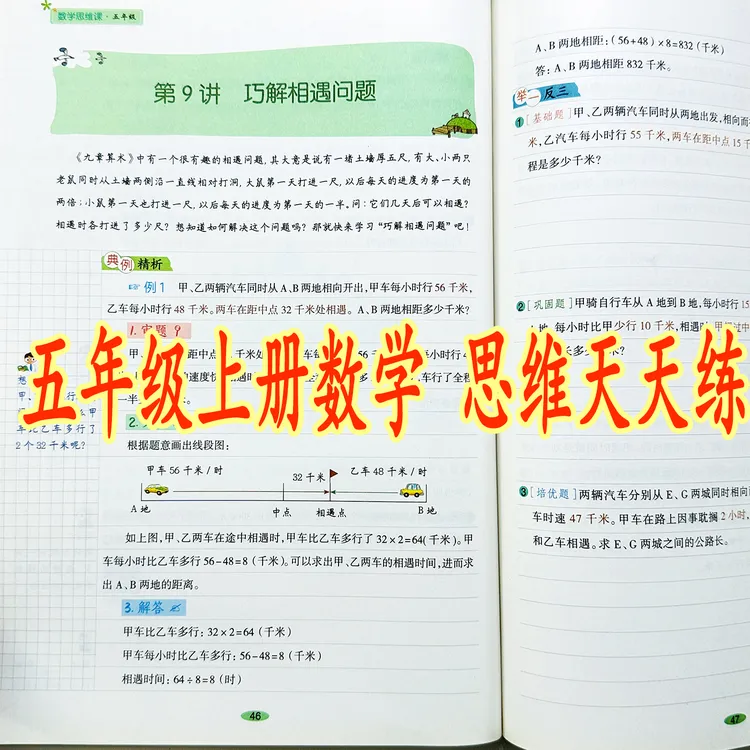 数学思维课·五年级
第9讲 巧解相遇问题
《九章算术》中有一个很有趣的相遇问题,其大意是说有一堵土墙厚五尺,有大、小两只
老鼠同时从土墙两侧沿一直线相对打洞,大鼠第一天打进一尺,以后每天的进度为第一天的
两倍;小鼠第一天也打进一尺,以后每天的进度为第一天的一半。问:它们几天后可以相遇?
相遇时各打进了多少尺?想知道如何解决这个问题吗?那就快来学习“巧解相遇问题”吧!
典例精析
例1 甲、乙两辆汽车同时从A、B两地相向开出,甲车每小时行56千米,
乙车每小时行48千米。两车在距中点32千米处相遇。A、B两地相距多少千米?
1.审题
五年级上册数学 思维天天练
车比乙车多行了
2个32千米呢?
根据题意画出线段图:
甲车56千米/时
32千米
乙车48千米/时
A地
中点
相遇点
B地
如上图,甲、乙两车在途中相遇时,甲车比乙车多行了32×2=64(千米)。甲
车每小时比乙车多行56-48=8(千米)。可以求出甲、乙两车的相遇时间,进而求
出A、B两地的距离。
3.解答
甲车比乙车多行:32×2=64(千米)
甲车每小时比乙车多行:56-48=8(千米)
相遇时间:64÷8=8(时)
46
A、B两地相距:(56+48)×8=832(千米)
答:A、B两地相距832千米。
举一反三
1 [基础题]甲、乙两辆汽车同时从两地出发,相向而
米,乙汽车每小时行55千米,两车在距中点15千
程是多少千米?
2 [巩固题]甲骑自行车从A地到B地,每小时行15
每小时比甲少行10千米,相遇时
3 [培优题]两辆汽车分别从E、G两城同时相向
车时速47千米。甲车在路上因事耽搁2小时,
和乙车相遇。求E、G两城之间的公路长。
47